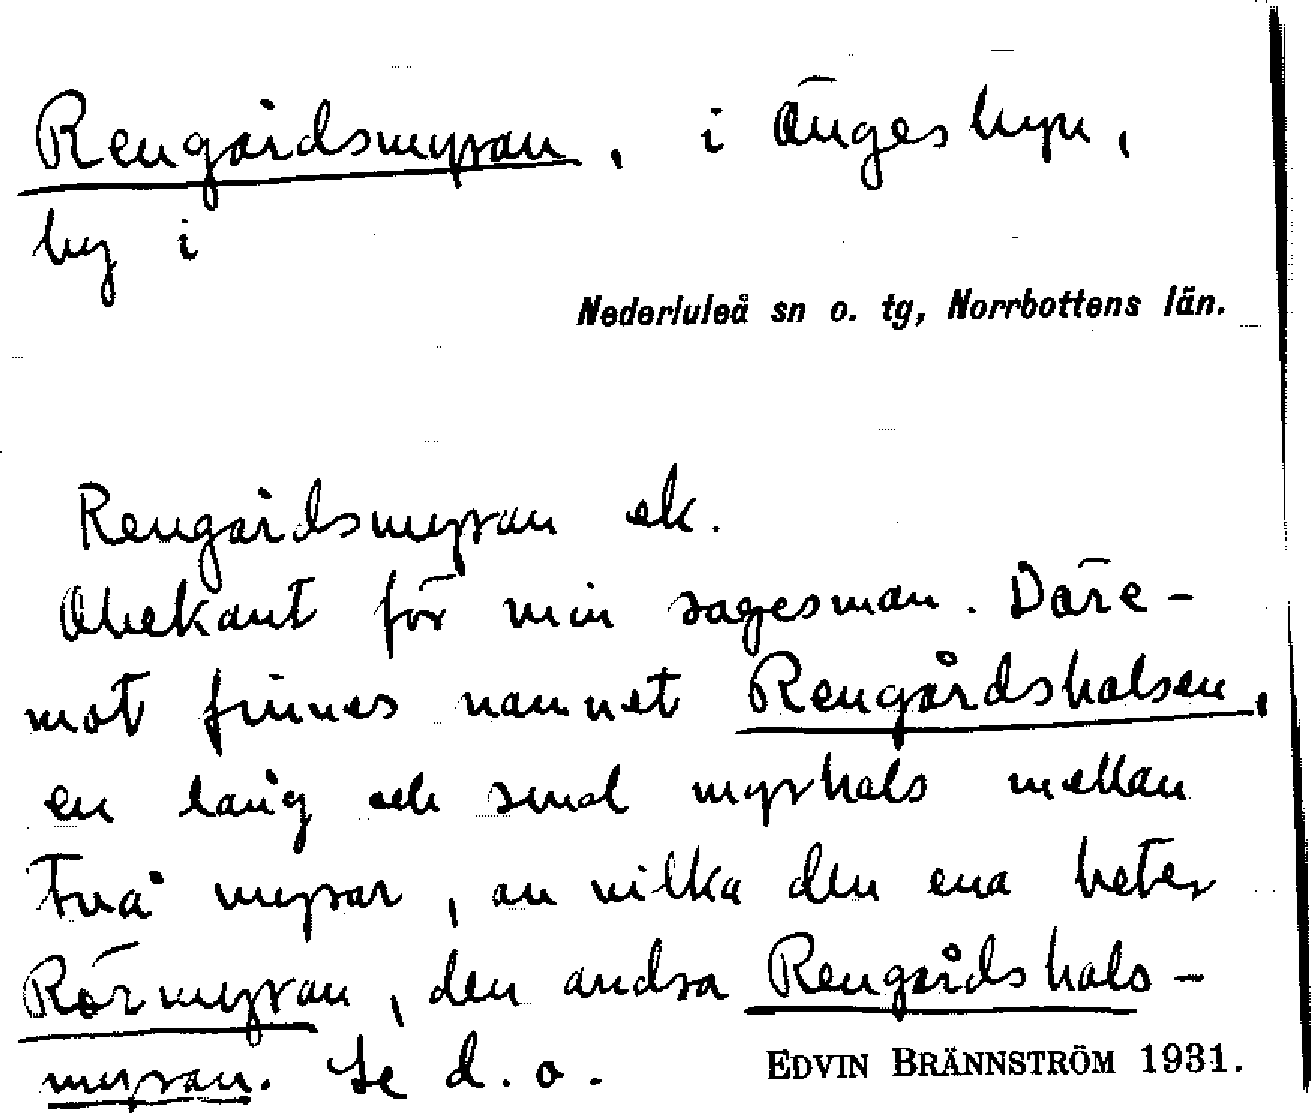 Rengårdsmyran, i Ängesbyn,
by i
Nederluleå sn o. tg, Norrbottens län.
Rengårdsmyran ek.
Obekant för min sagesman. Däre-
mot finnes namnet Rengårdshalsen,
en lång och smal myrhals mellan
två myrar, av vilka den ena heter
Rörmyran, den andra Rengårdshals-
myran. Se d. o.
EDVIN BRÄNNSTRÖM 1931.